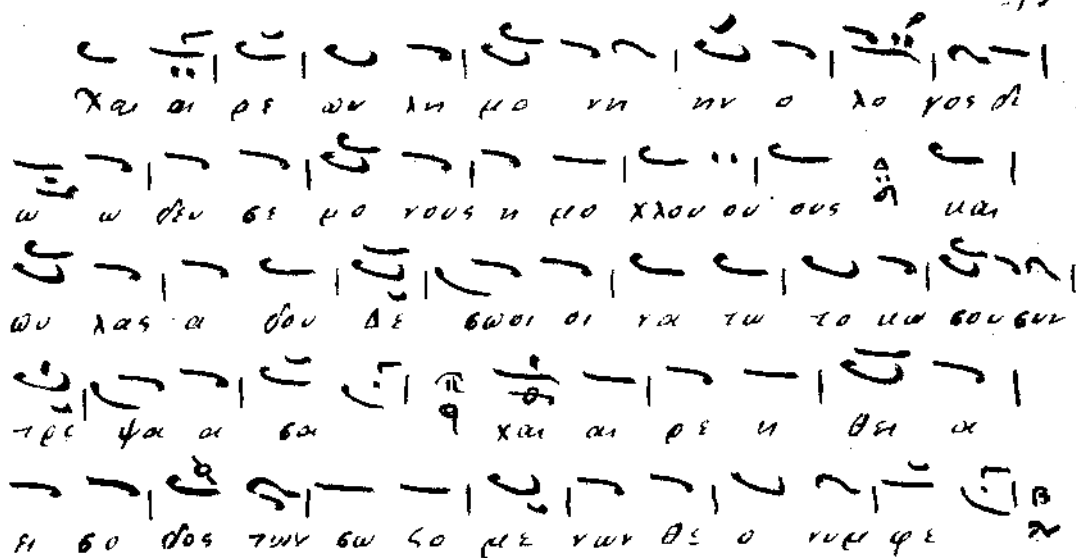 Χαι αι ρε ων λη μο νη ην ο λο γος δι
ω ω δευ σε μο νους η μο χλου ου ους και
ων λας α δου Δε σωοι οι να τω το κω σου συν
τρε ψα α σα χαι αι ρε η θει α
ει σο δος των σω ζο με νων θε ο νυμ φε